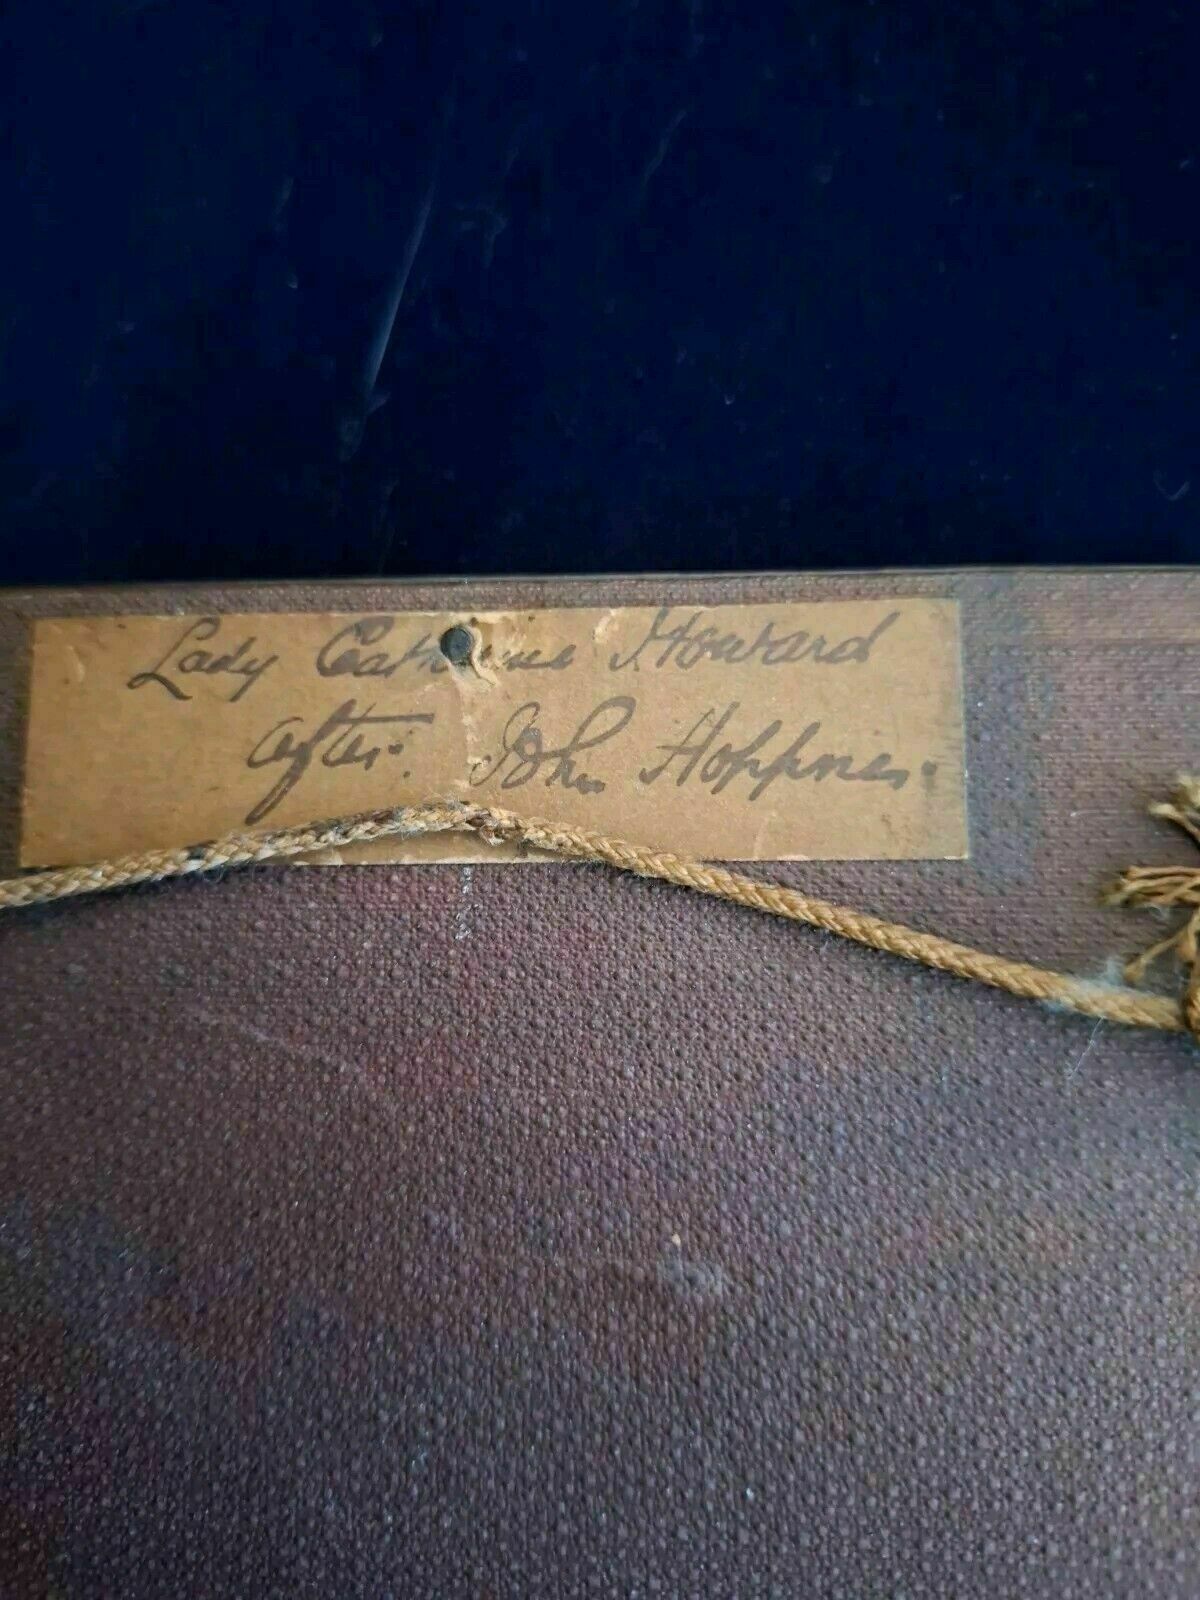 Lady Catherine Howard
after. John Hoppner.